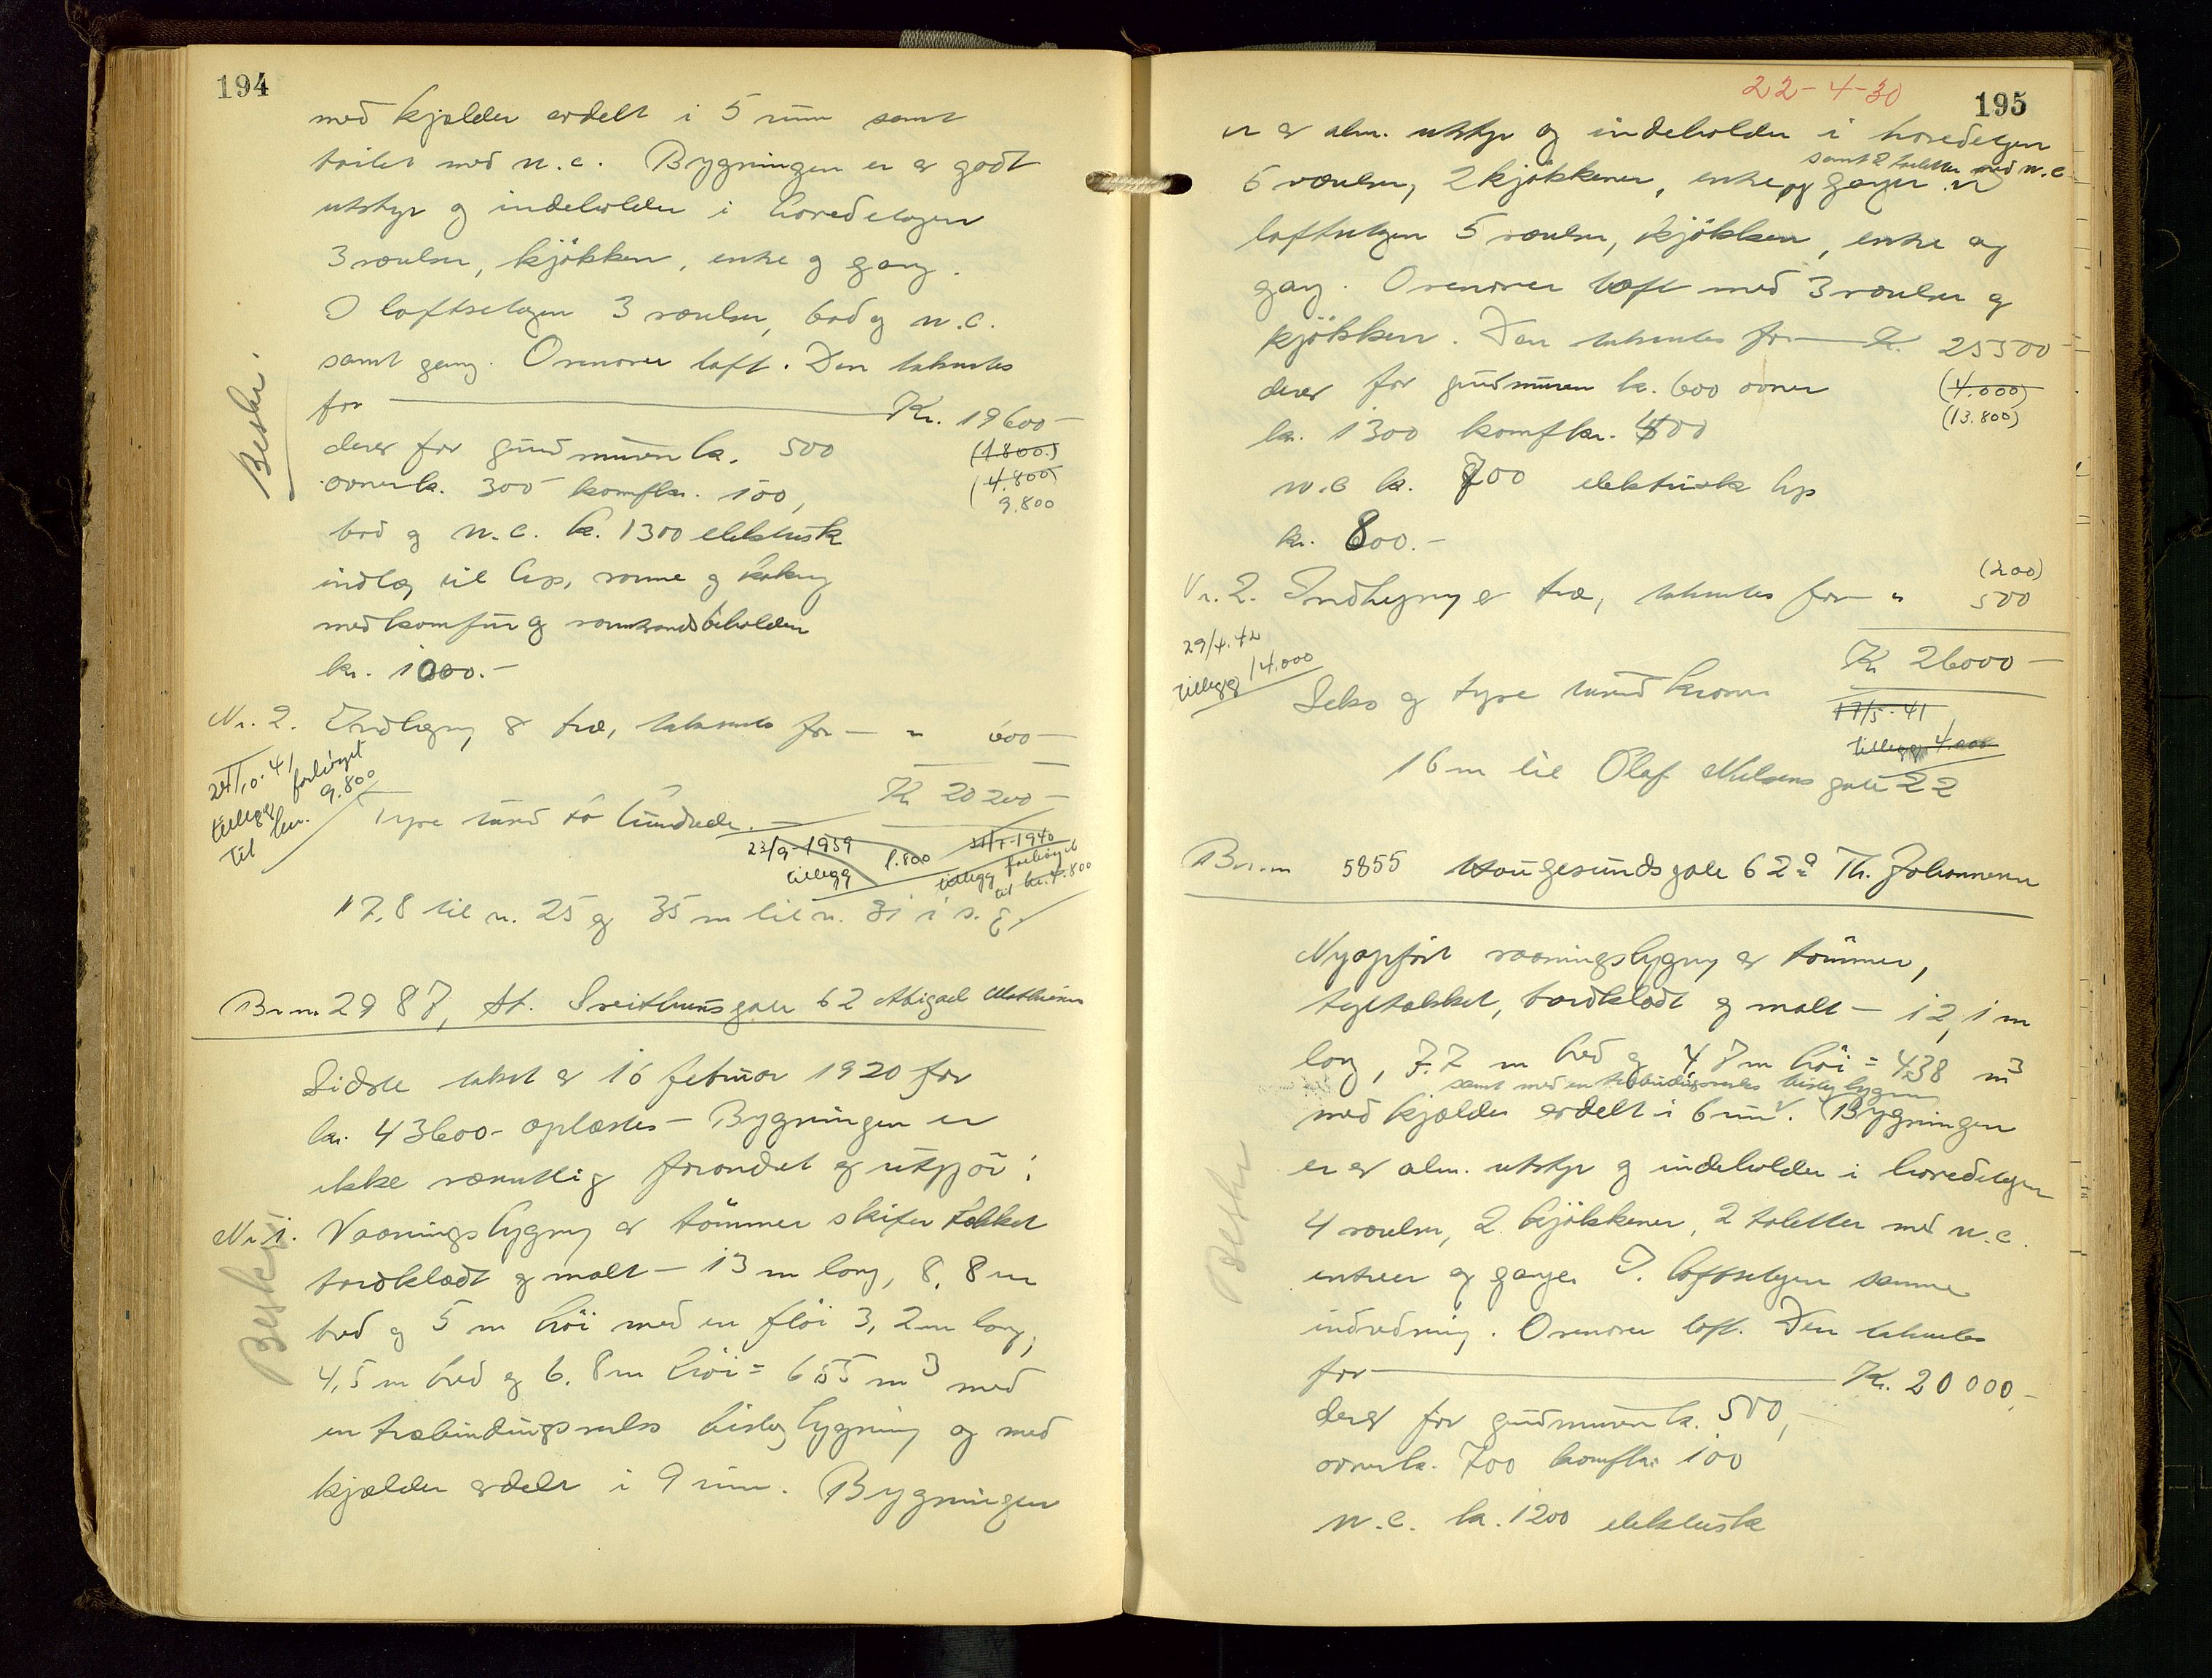 194
med kjælder avdelt i 5 rum samt
toilet med w.c. Bygningen er av godt
utstyr og indeholder i hovedetagen
3 værelser, kjøkken, entre og gang.
I loftsetagen 3 værelser, bad og w.c.
samt gang. Ovenover loft. Den takseres
for Kr. 19600-
derav for grundmuren kr. 500
(1.800)
ovner kr. 300 komf kr. 100,
(4.800)
9.800
bad og w.c. kr. 1300 elektrisk
indlæg til lys, varme og kokning
med komfur og varmtvandsbeholder
kr. 1000.-
Beskr.
Nr. 2. Indhegning av træ, takseres for - " 600-
Kr 20200-
24/10-41
tillegg forhøyet
til kr. 9.800
Tyve tusind to hundrede.
23/9-1939
tillegg 1.800
1940
tillegg forhøyet
til kr. 4.800
17,8 til n. 25 og 35 m til n. 31 i s. g.
Br nr 2987, St. Sveithunsgate 62 Abigael Mathiesen
Sidste takst av 16 februar 1920 for
kr. 43600- oplæstes - Bygningen er
ikke væsentlig forandret og utgjør:
Nr 1. Vaaningsbygning av tømmer skifertækket
bordklædt og malt - 13 m lang, 8,8 m
bred og 5 m høi med en fløi 3,2 m lang,
4,5 m bred og 6,8 m høi = 655 m3 med
en træbindingsverks bislagbygning og med
kjælder avdelt i 9 rum. Bygningen
Beskr.
22-4-30
195
er av alm. utstyr og indeholder i hovedetagen
samt 2 toiletter med w.c
6 værelser, 2 kjøkkener, entre og ganger. I
loftsetagen 5 værelser, kjøkken, entre og
gang. Ovenover loft med 3 værelser og
kjøkken. Den takseres for Kr. 25500
derav for grundmuren kr. 600 ovner
(4.000)
(13.800)
kr. 1300 komf kr. 400
w.c kr. 700 elektrisk lys
kr. 800.-
(200)
Nr. 2. Indhegning av træ, takseres for " 500
Kr 26000-
29/4.42
tillegg 14.000
Seks og tyve tusind kroner
17/5-41
tillegg 4.000
16 m til Olaf Nielsens gate 22
Br.nr 5855 Haugesundsgate 62a Th. Johannesen
Nyopført vaaningsbygning av tømmer,
tegltækket, bordklædt og malt - 12,1 m
lang, 7.7 m bred og 4,7 m høi = 438 m3
samt med en træbindingsverks bislagbygning
med kjælder avdelt i 6 rum. Bygningen
er av alm. utstyr og indeholder i hovedetagen
4 værelser, 2 kjøkkener, 2 toiletter med w.c.
entreer og ganger. I loftsetagen samme
indredning. Ovenover loft. Den takseres
for Kr. 20 000,-
derav for grundmuren kr. 500,
ovner kr. 700 komf kr. 100
w.c. kr. 1200 elektrisk
Beskr